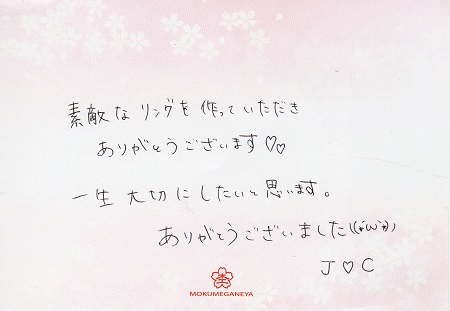 素敵なリングを作っていただき
ありがとうございます♡♡
一生大切にしたいと思います。
ありがとうございました!(*´ω`*)
J♡C
MOKUMEGANEYA